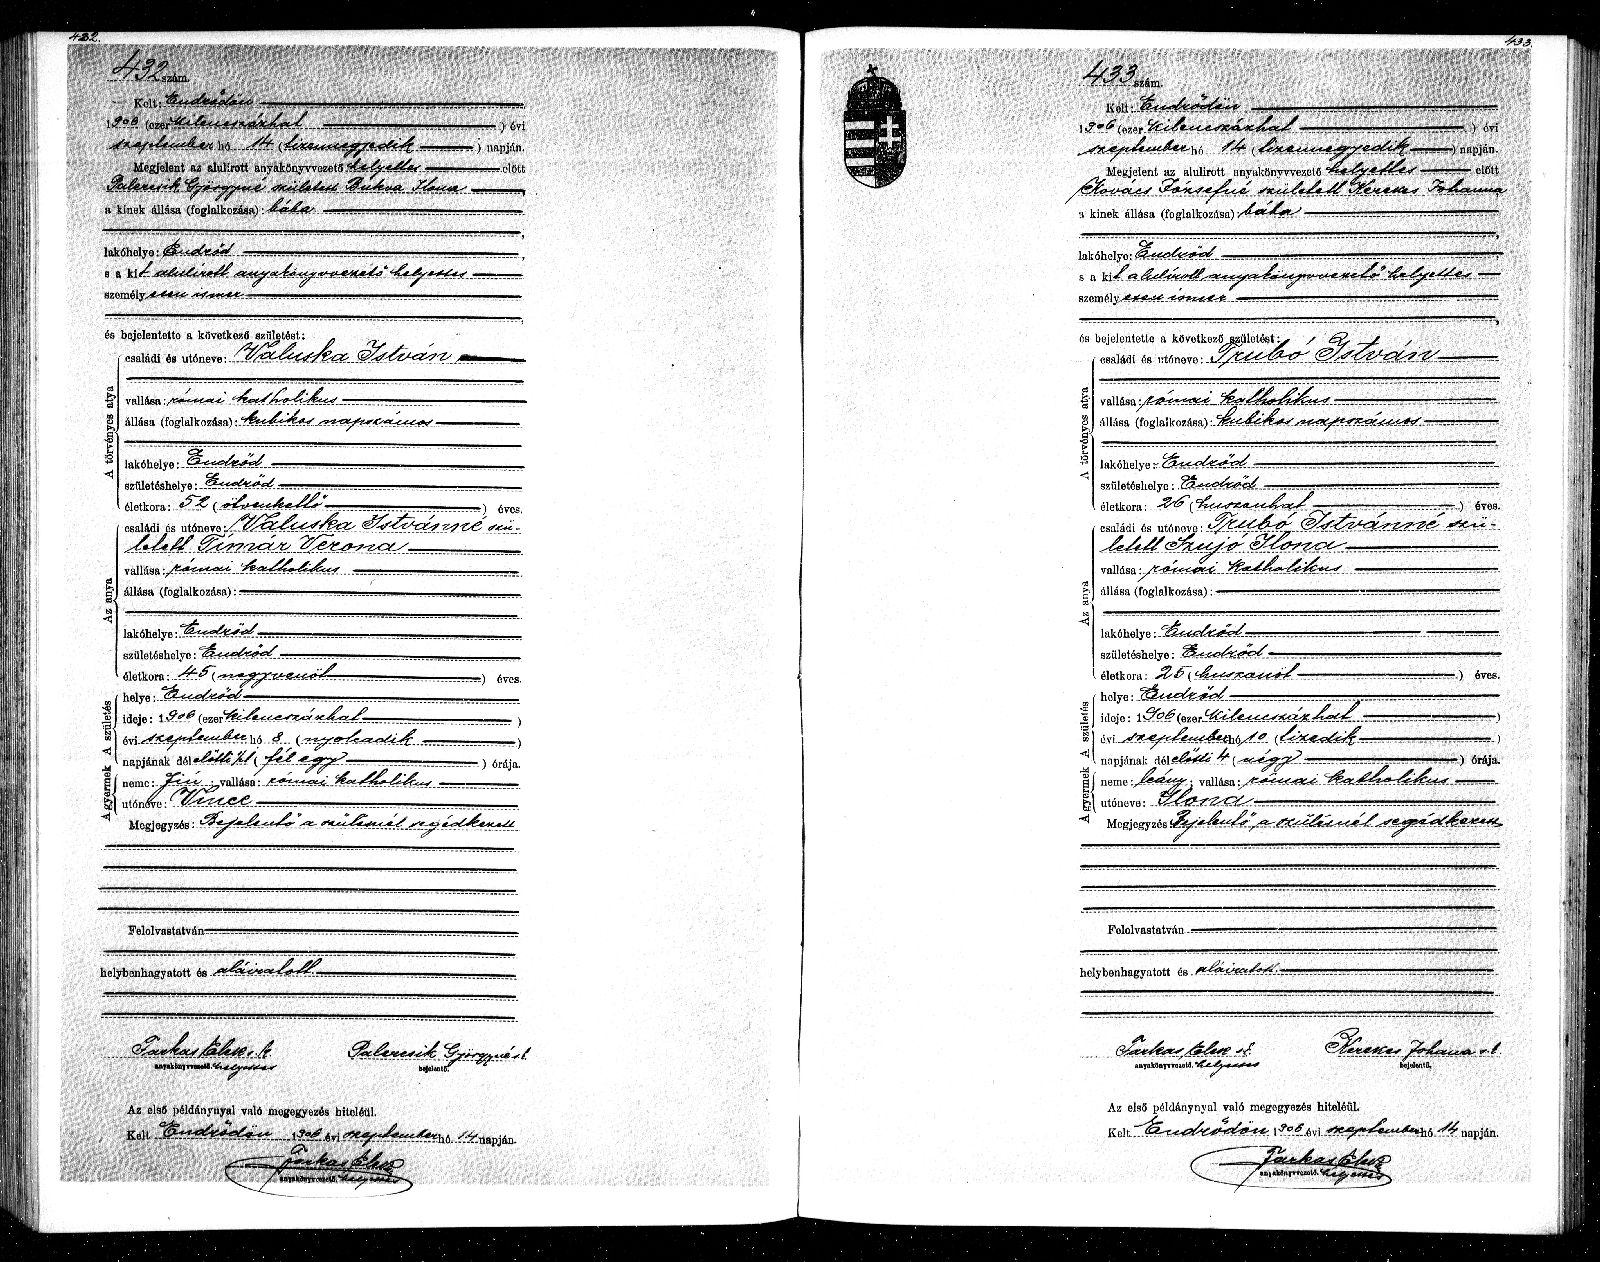 432.
432 szám.
Kelt: Endrődön
1906 (ezer kilencszázhat) évi
szeptember hó 14 (tizennegyedik) napján.
Megjelent az alulirott anyakönyvvezető helyettes előtt
Palercsik Györgyné született Bukva Ilona
a kinek állása (foglalkozása): bába
lakóhelye: Endrőd
s a kit alulirott anyakönyvvezető helyettes
személyesen ismer
és bejelentette a következő születést:
A törvényes atya
családi és utóneve: Valuska István
vallása: római katholikus
állása (foglalkozása): kubikos napszámos
lakóhelye: Endrőd
születéshelye: Endrőd
életkora: 52 (ötvenkettő) éves.
Az anya
családi és utóneve: Valuska Istvánné szü-
letett Tímár Verona
vallása: római katholikus
állása (foglalkozása):
lakóhelye: Endrőd
születéshelye: Endrőd
életkora: 45 (negyvenöt) éves.
A születés
helye: Endrőd
ideje: 1906 (ezer kilencszázhat)
évi szeptember hó 8 (nyolcadik)
napjának délelőtti ½1 (fél egy) órája.
A gyermek
neme: fiú; vallása: római katholikus
utóneve: Vince
Megjegyzés: Bejelentő a szülésnél segédkezett
Felolvastatván
helybenhagyatott és aláiratott
Farkas Elek s. k. Palercsik Györgyné s. k.
anyakönyvvezető. helyettes bejelentő.
Az első példánynyal való megegyezés hiteléül.
Kelt Endrődön 1906 évi szeptember hó 14 napján.
Farkas Elek
anyakönyvvezető. helyettes
433.
433 szám.
Kelt: Endrődön
1906 (ezer kilencszázhat) évi
szeptember hó 14 (tizennegyedik) napján.
Megjelent az alulirott anyakönyvvezető helyettes előtt
Kovács Józsefné született Kerekes Johanna
a kinek állása (foglalkozása): bába
lakóhelye: Endrőd
s a kit alulirott anyakönyvvezető helyettes
személyesen ismer
és bejelentette a következő születést:
A törvényes atya
családi és utóneve: Trubó István
vallása: római katholikus
állása (foglalkozása): kubikos napszámos
lakóhelye: Endrőd
születéshelye: Endrőd
életkora: 26 (huszonhat) éves.
Az anya
családi és utóneve: Trubó Istvánné szü-
letett Szujó Ilona
vallása: római katholikus
állása (foglalkozása):
lakóhelye: Endrőd
születéshelye: Endrőd
életkora: 25 (huszonöt) éves.
A születés
helye: Endrőd
ideje: 1906 (ezer kilencszázhat)
évi szeptember hó 10 (tizedik)
napjának délelőtti 4 (négy) órája.
A gyermek
neme: leány; vallása: római katholikus
utóneve: Ilona
Megjegyzés: Bejelentő a szülésnél segédkezett
Felolvastatván
helybenhagyatott és aláiratott
Farkas Elek s. k. Kerekes Johana s. k.
anyakönyvvezető. helyettes bejelentő.
Az első példánynyal való megegyezés hiteléül.
Kelt Endrődön 1906 évi szeptember hó 14 napján.
Farkas Elek
anyakönyvvezető. helyettes